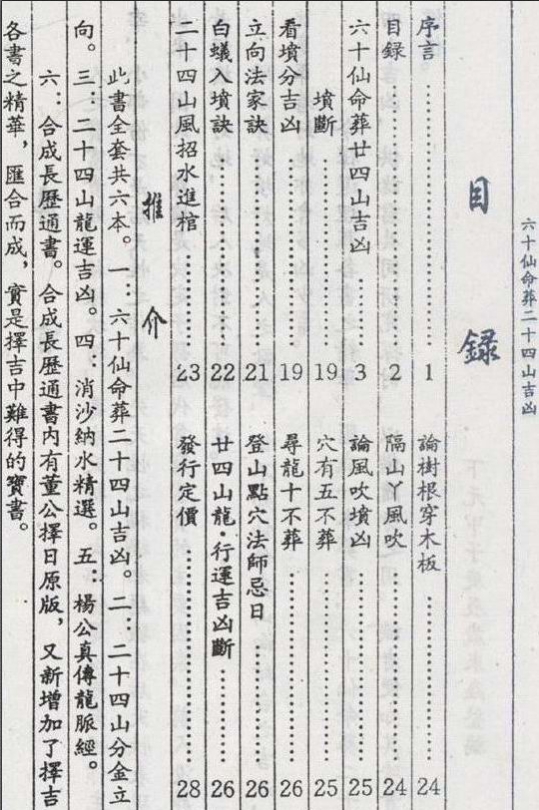 六十仙命葬二十四山吉凶
目錄
序言……………………1
目録……………………2
六十仙命葬廿四山吉凶……3
墳斷……………………19
看墳分吉凶……………19
立向法家訣……………21
白蟻入墳訣……………22
二十四山風招水進棺……23
論樹根穿木板…………24
隔山丫風吹……………24
論風吹墳凶……………25
穴有五不葬……………25
尋龍十不葬……………26
登山點穴法師忌日………26
廿四山龍·行運吉凶斷……26
發行定價………………28
推介
此書全套共六本。一：六十仙命葬二十四山吉凶。二：二十四山分金立
向。三：二十四山龍運吉凶。四：消沙納水精選。五：楊公真傳龍脈經。
六：合成長歷通書。合成長歷通書内有董公擇日原版，又新增加了擇吉
各書之精華，匯合而成，實是擇吉中難得的寶書。